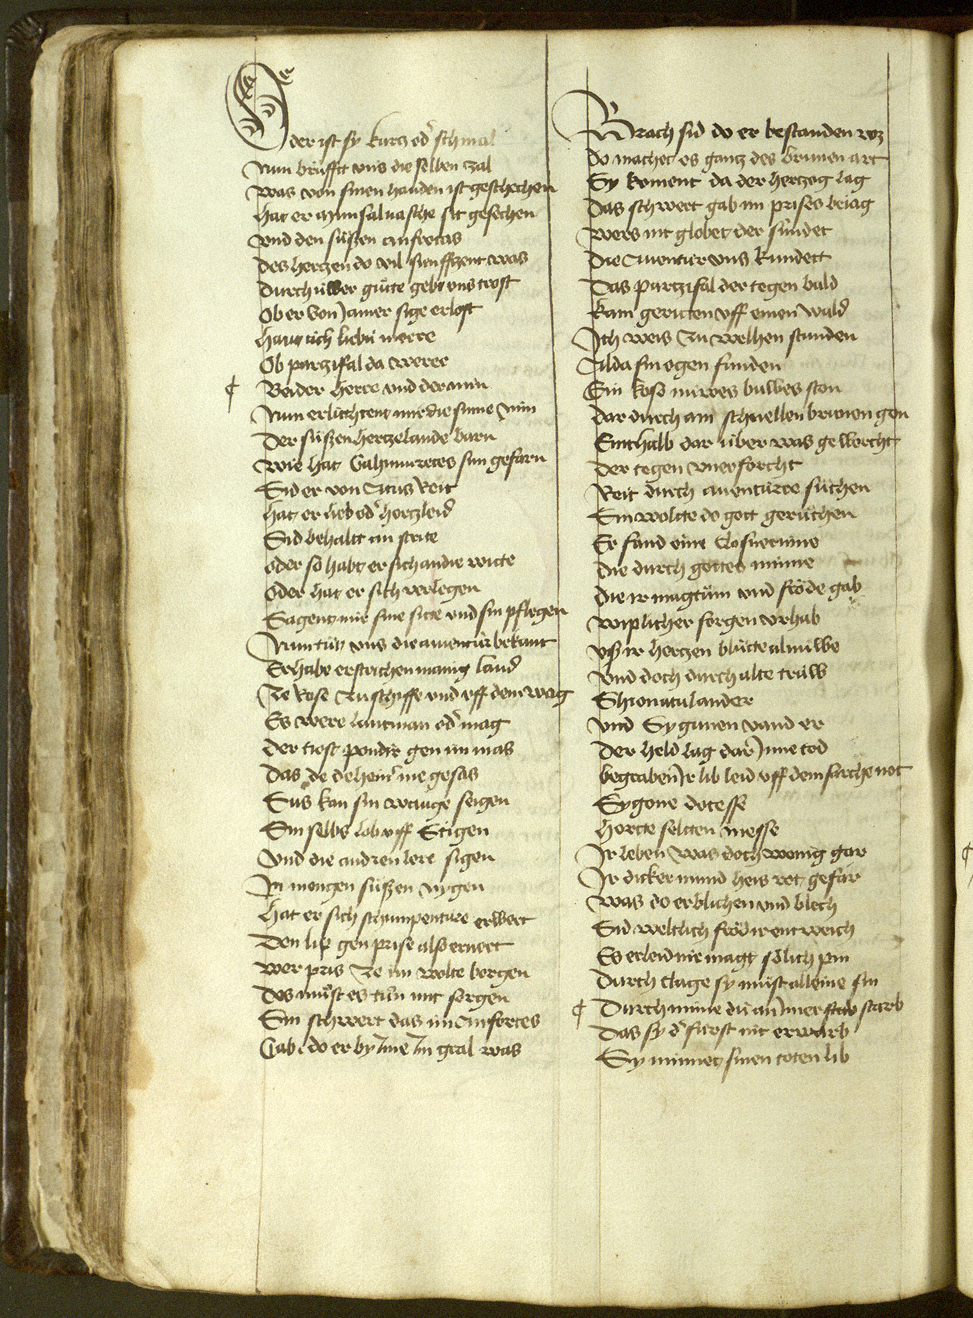 Oder ist sy kurcz od schmal
Nun brüfft uns die selben zal
Was von sinen handen ist geschechen
hat er Munsalvasche sit gesechen
und den süssen anfortas
Des herczen do vil sunffzent was
Durch üwer güte gebt uns trost
Ob er von Jamer sige erlost
hant üch liebü mere
Ob parzifal da were
¶ Beider herre und der min
Nun erlüchtent mir die sinne min
Der süssen herczelaude barn
Wie hat Gahmuretes sun gefarn
Sid er von Artus Reit
hat er lieb od herczleid
Sid behalt an strite
oder so habt er sich an die wite
oder hat er sich verlegen
Sagent mir sine sitte und sin pflegen
Nun tüt uns die aventür bekant
Er habe erstrichen manig land
Ze Rose zu schiffe und uff dem wag
Es were lantman od mag
der tiost pondir gen im mas
Das de deheinr nie gesas
Sus kan sin wauge seigen
Sin selbs lob uff Stigen
Und die andren lere sigen
In mengen süssen zugen
hat er sich schumpenture erwert
Den lip gen prise als er nert
Wer pris ze im wolte borgen
Des müst es tün mit sorgen
Sin schwert das im Amfortes
Gab do er by Ime Im gral was
Brach sid do er bestanden
do machet es gancz des brunen art
Sy koment da der herczog lag
Das schwert gab im prises beiag
Wers nit globet der sündet
Die Aventür uns kundett
Das Parzifal der tegen bald
kam geritten uff einen wald
Ich weis zu welhen stunden
Alda sin ogen funden
Ein kose nüwes buwes ston
Dar durch ain schnellen brunen gon
Einthalb dar über was geworcht
Der tegen unerforcht
Reit durch aventürre süchen
Sin wolte do gott gerüchen
Er fand eine Closnerinne
die durch gottes minne
die ir magtum und fröde gab
Wiplicher sorgen urhab
uss ir herczen blütte alnüwe
und doch durch alte trüw
Shionatulander
und Sygunen vand er
Der held lag dar Inne tod
begraben Ir lib leid uff dem sarche not
Sygone docesse
horte selten messe
Ir leben was doch wenig gar
Ir dicker mund heis rot gefar
Was do erblichen und blech
Sid weltlich fröd ir entweich
Es erleid nie magt sölich pin
durch clage sy müst alleine sin
¶ Durch mine die an Imer stab starb
Das sy d fürst nit erwarb
Sy minnet sinen toten lib